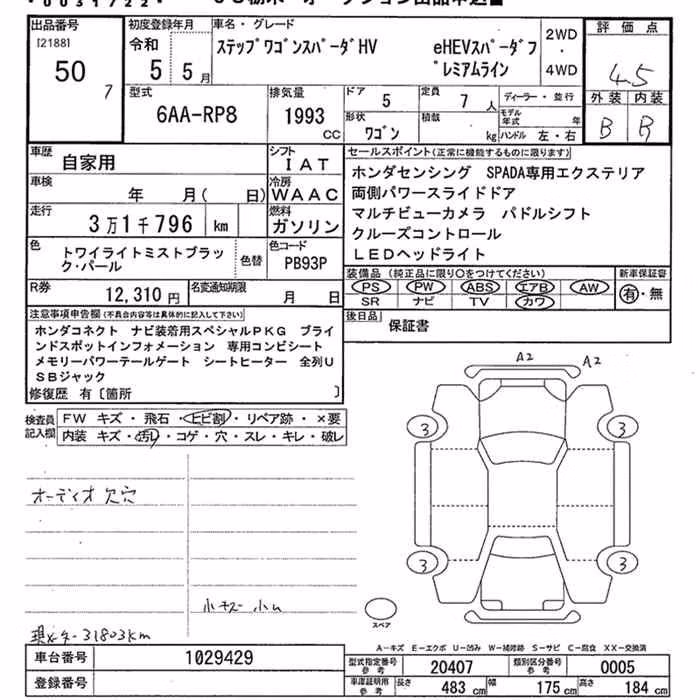 出品番号
[2188]
50
7
初度登録年月
令和
5 5 月
車名・グレード
ステップワゴンスパーダHV eHEVスパーダプ
レミアムライン
2WD
・
4WD
評価点
4.5
外装 内装
B B
型式
6AA-RP8
排気量
1993
CC
ドア 5
定員 7 人
形状 ワゴン
積載 kg
ディーラー・並行
モデル年式 年
ハンドル 左・右
車歴
自家用
シフト
IAT
車検
年 月( 日)
冷房
WAAC
走行
3万1千796 km
燃料
ガソリン
色
トワイライトミストブラッ
ク・パール
色替
色コード
PB93P
R券
12,310 円
名変通知期限
月 日
セールスポイント(正常に機能するものに限ります)
ホンダセンシング SPADA専用エクステリア
両側パワースライドドア
マルチビューカメラ パドルシフト
クルーズコントロール
LEDヘッドライト
装備品(純正品に限り○をつけてください)
PS PW ABS エアB AW
SR ナビ TV カワ
新車保証書
有・無
後日品
保証書
注意事項申告欄(不具合内容等は具体的に記入して下さい)
ホンダコネクト ナビ装着用スペシャルPKG ブライ
ンドスポットインフォメーション 専用コンビシート
メモリーパワーテールゲート シートヒーター 全列U
SBジャック
修復歴 有〔箇所 〕
検査員
記入欄
FW キズ・飛石・ヒビ割・リペア跡・×要
内装 キズ・汚レ・コゲ・穴・スレ・キレ・破レ
オーディオ欠穴
小キズ 小ム
現メーター31803km
A2
A2
3
3
3
3
スペア
A-キズ E-エクボ U-凹み W-補修跡 S-サビ C-腐食 XX-交換済
車台番号
1029429
登録番号
型式指定番号
参考
20407
類別区分番号
参考
0005
車庫証明用
参考
長さ 483 cm
幅 175 cm
高さ 184 cm